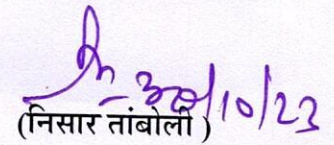 30/10/23
(निसार तांबोली)